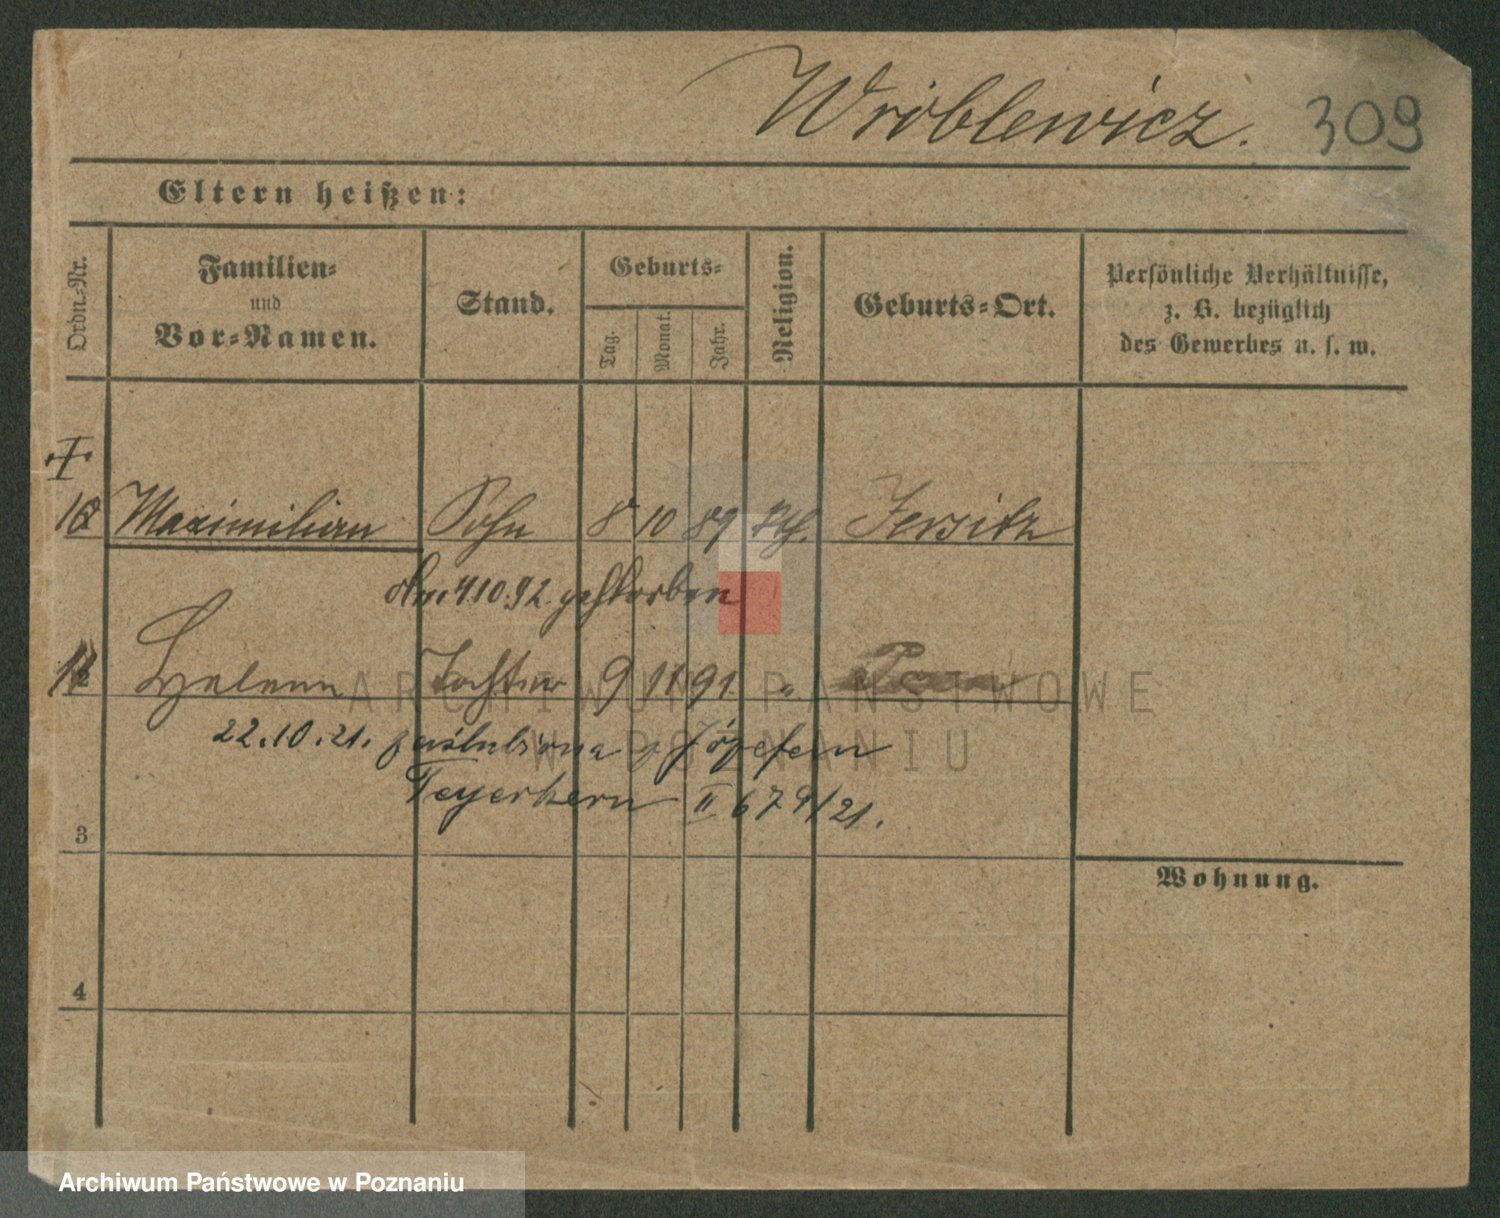 Wróblewicz. 309
Eltern heißen:
Ordn.-Nr.
Familien-
und
Vor-Namen.
Stand.
Geburts-
Tag.
Monat.
Jahr.
Religion.
Geburts-Ort.
Persönliche Verhältnisse,
z. B. bezüglich
des Gewerbes u. s. w.
Maximilian Sohn 8 10 89 Kth. Jersitz
4.10.92 gestorben
Helena Tochter 9 11 91 "
22.10.21. zaślubiona z Józefem
Feyerherm II 679/21.
3
Wohnung.
4
ARCHIWUM PAŃSTWOWE
W POZNANIU
Archiwum Państwowe w Poznaniu